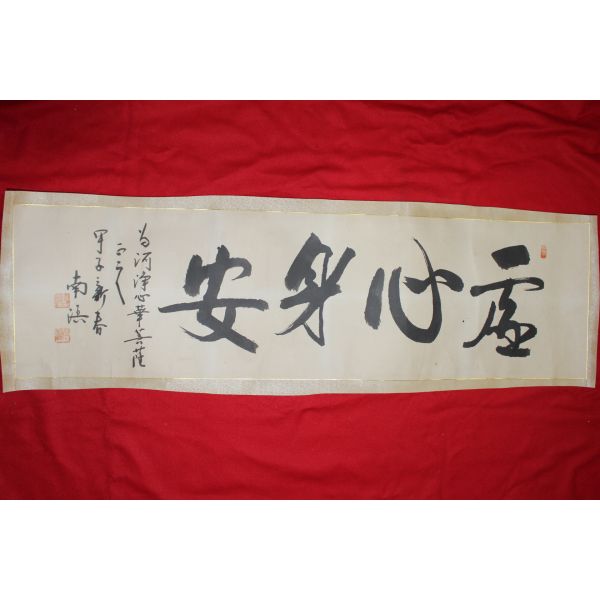 虛心身安
為河淨心華菩薩
正之
甲子新春
南